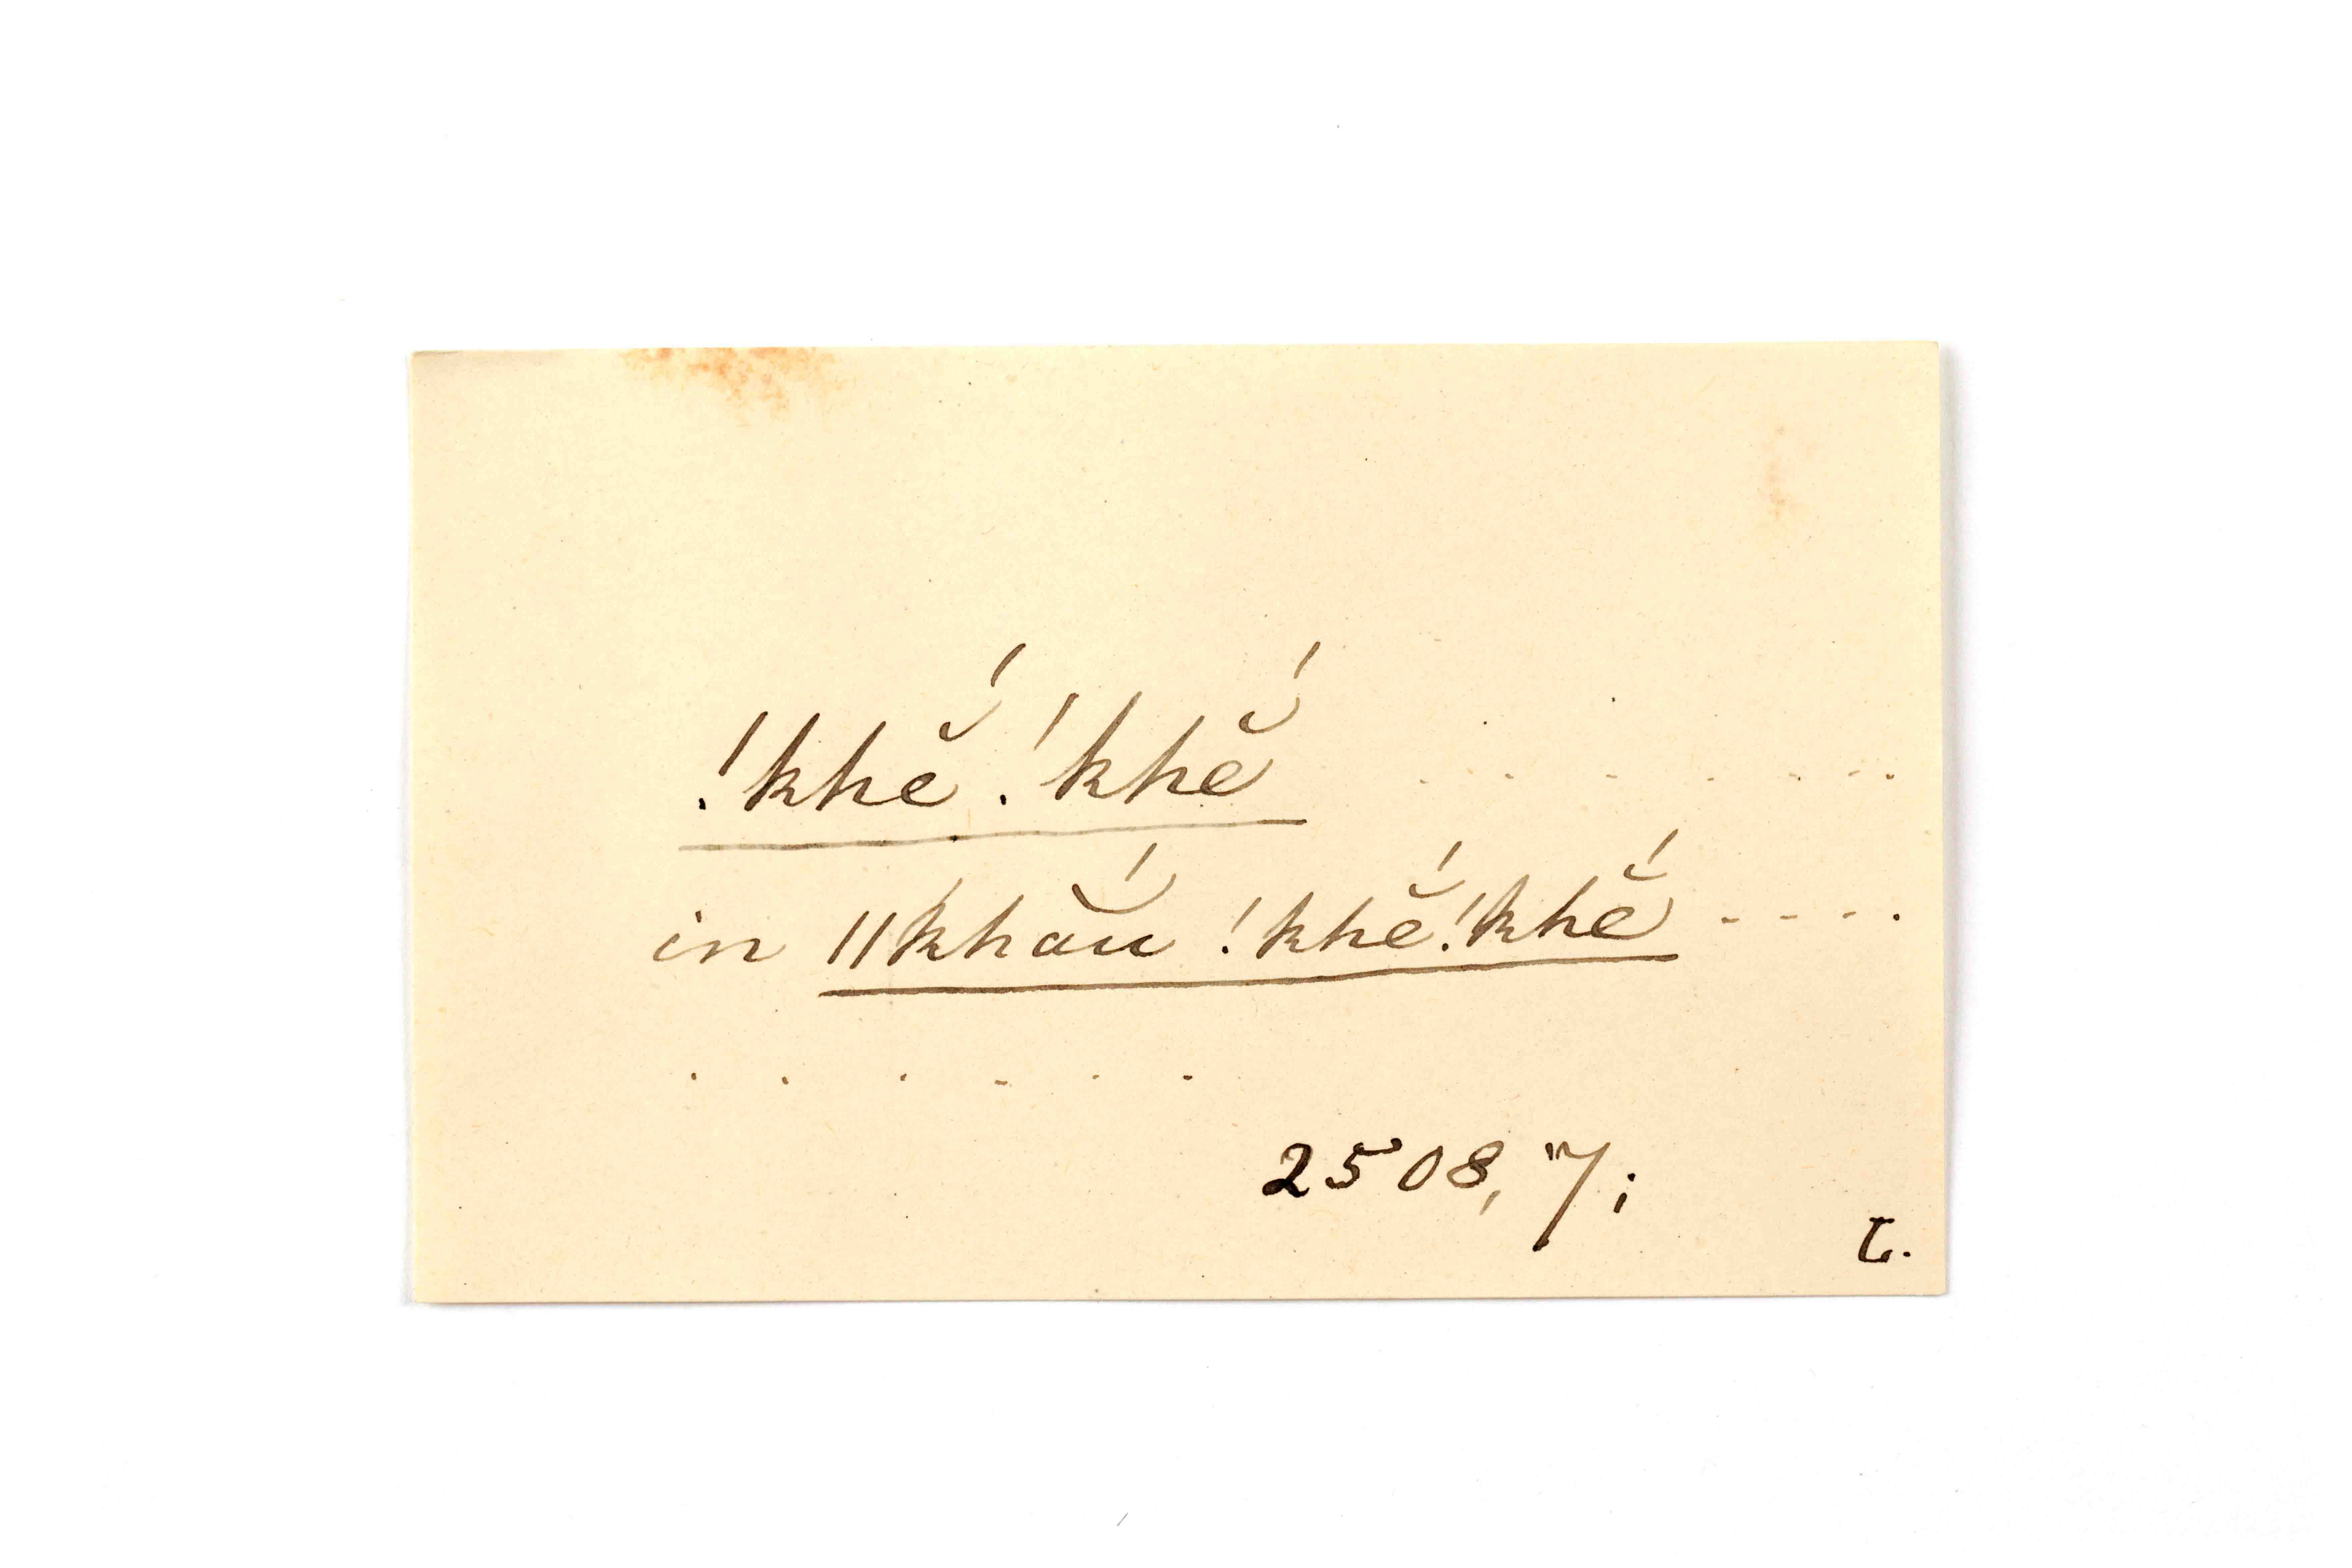 !khĕ́!khĕ́ . . . . . . .
in ǁkhắu !khĕ́!khĕ́ - - - - .
. . . . . .
2508, 7;
L.